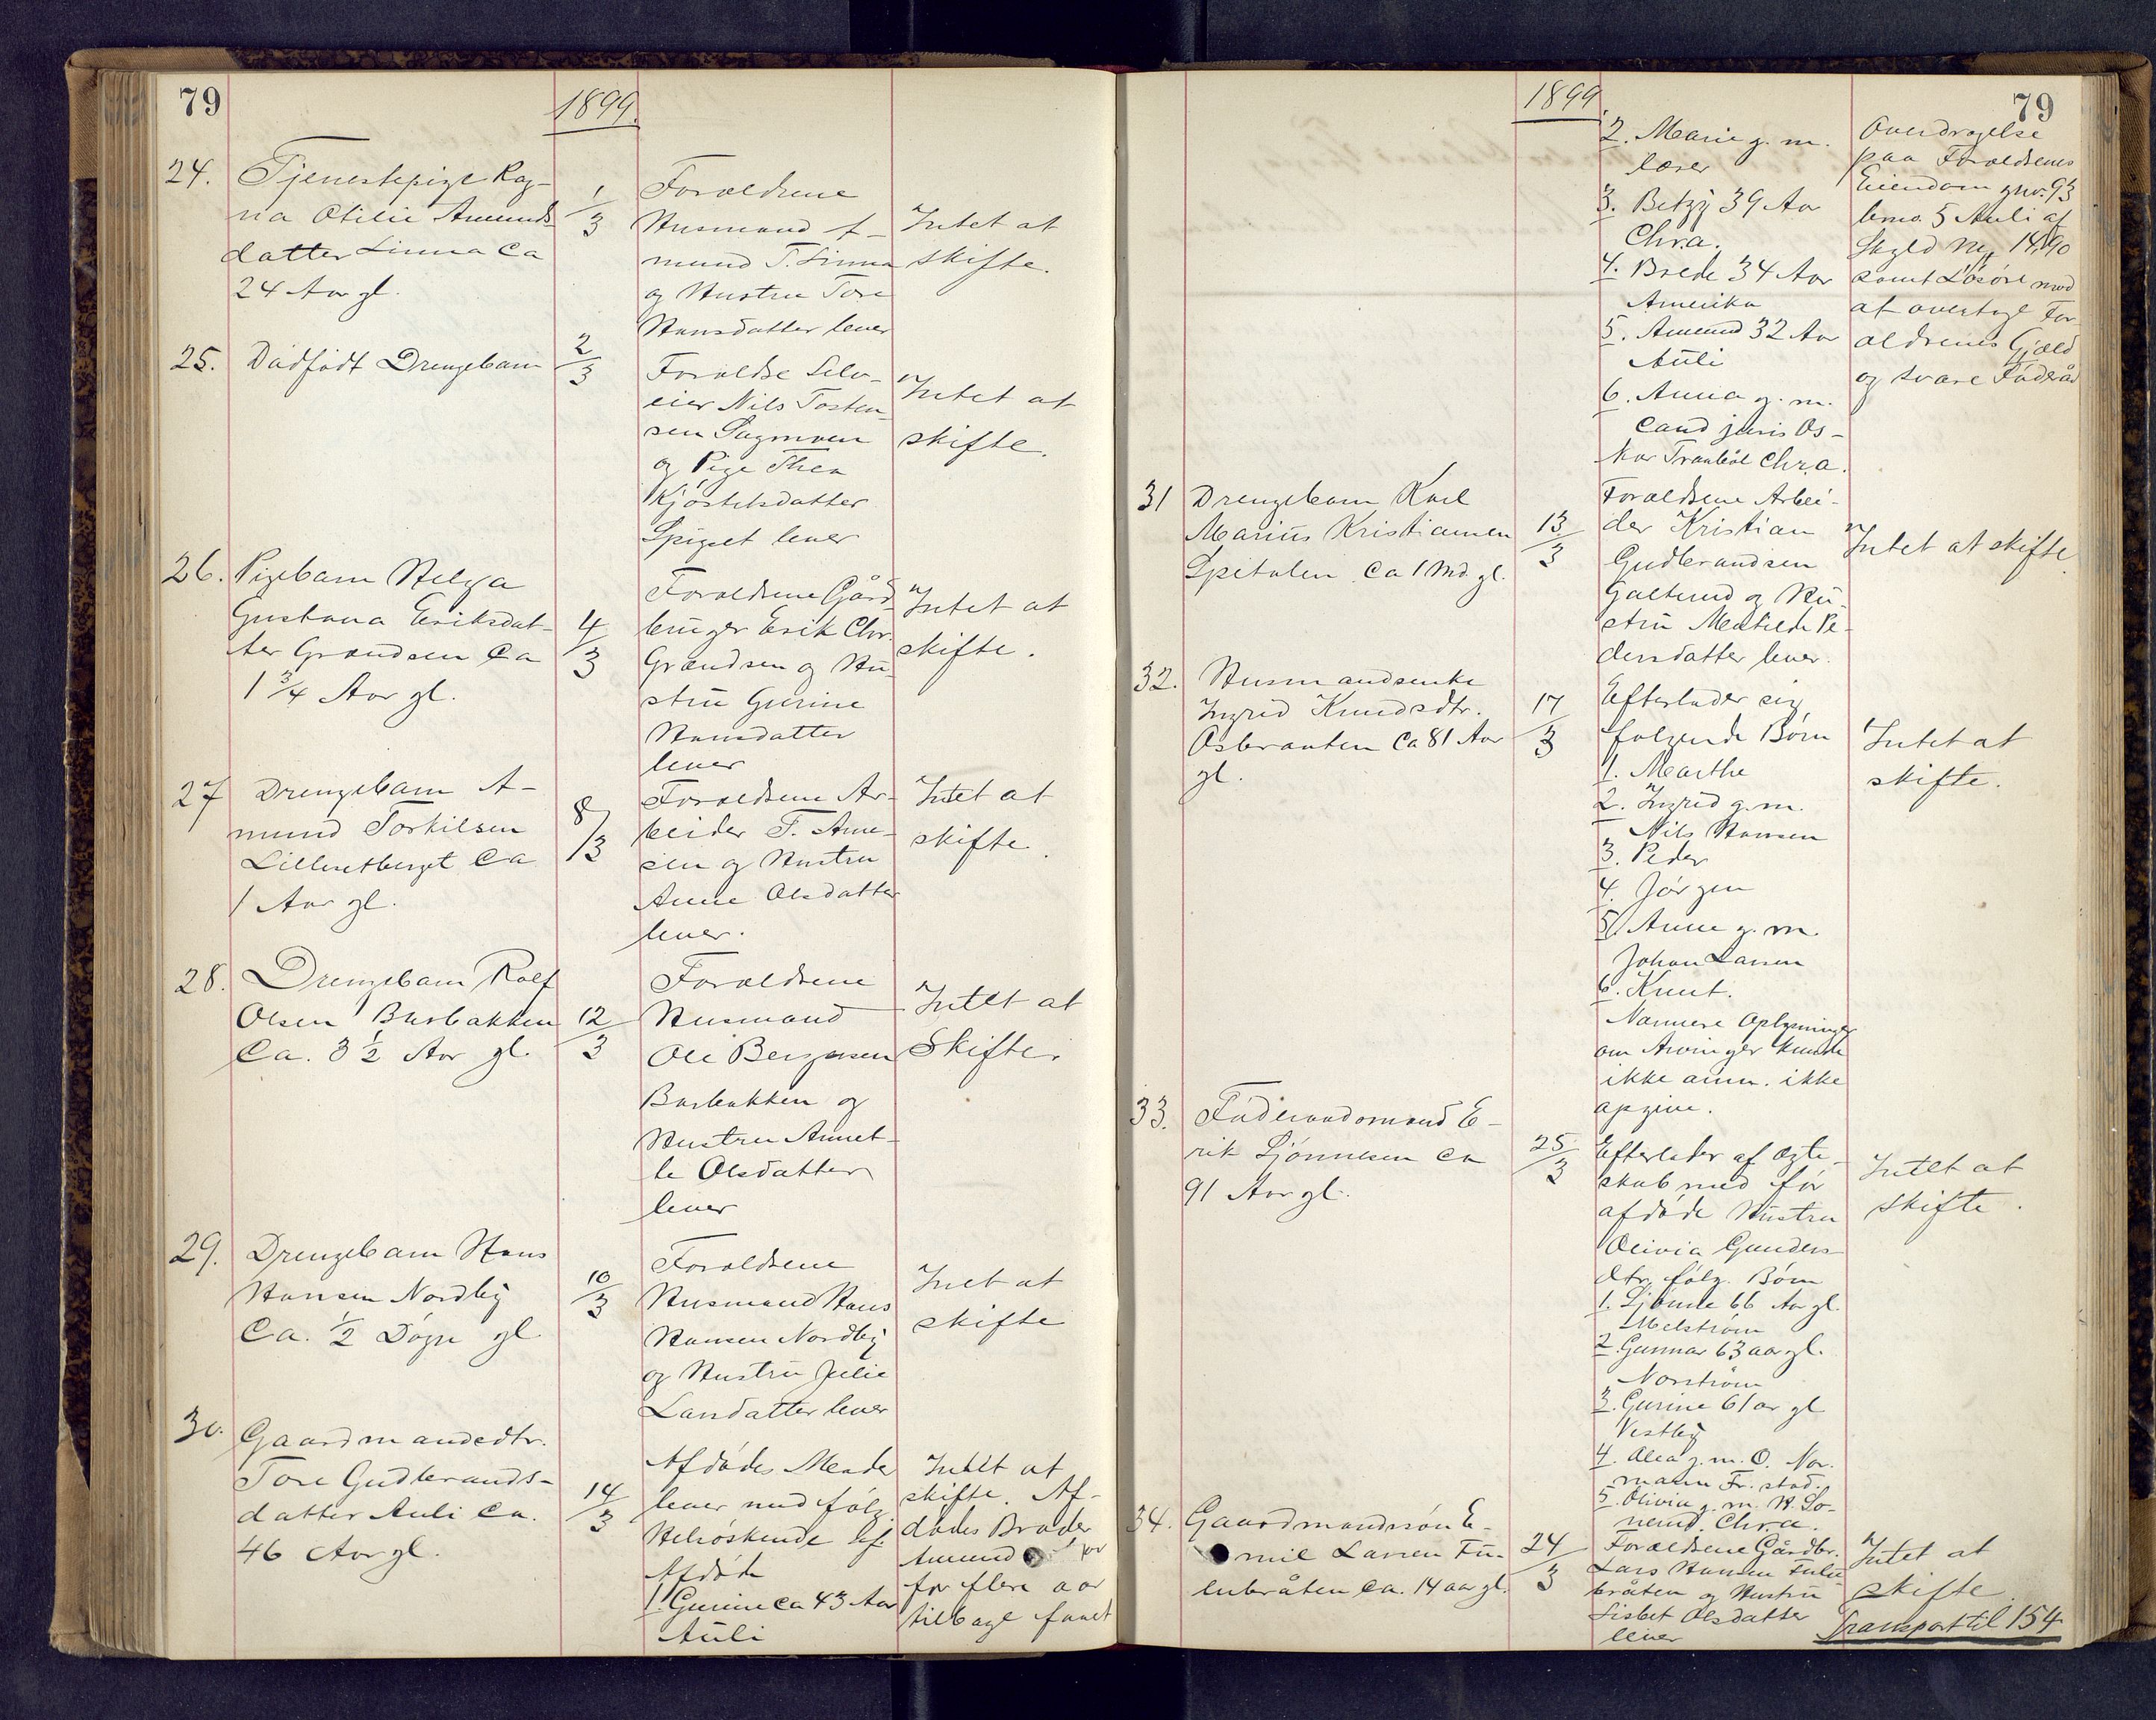 79
1899.
24. Tjenestepige Rag-
na Otilie Amunds-
datter Linna Ca
24 Aar gl.
1/3
Forældrene
Husmand A-
mund T. Linna
og Hustru Tore
Hansdatter lever
Intet at
skifte.
25. Dødfødt Drengebarn
2/3
Forældre Selv-
eier Nils Tosten-
sen Sagmoen
og Pige Thea
Kjøstelsdatter
Spigset lever
Intet at
skifte.
26. Pigebarn Helga
Gustava Eriksdat-
ter Grændsen Ca
1 3/4 Aar gl.
4/3
Forældrene Gård-
bruger Erik Chr.
Grændsen og Hu-
stru Gurine
Hansdatter
lever
Intet at
skifte.
27 Drengebarn A-
mund Torkilsen
Lilleretberget Ca
1 Aar gl.
8/3
Forældrene Ar-
beider T. Arne-
sen og Hustru
Anne Olsdatter
lever.
Intet at
skifte.
28. Drengebarn Rolf
Olsen Busbakken
Ca. 3 1/2 Aar gl.
12/3
Forældrene
Husmand
Ole Bergersen
Busbakken og
Hustru Annet-
te Olsdatter
lever
Intet at
Skifte.
29. Drengebarn Hans
Hansen Nordby
Ca. 1/2 Døgn gl
10/3
Forældrene
Husmand Hans
Hansen Nordby
og Hustru Julie
Larsdatter lever
Intet at
skifte
30. Gaardmandsdtr.
Tore Gudbrands-
datter Auli Ca.
46 Aar gl.
14/3
Afdødes Moder
lever med følg.
Helsøskende af
Afdøde
1. Gurine Ca 43 Aar
Auli
Intet at
skifte. Af-
dødes Broder
Amund har
for flere aar
tilbage faaet
79
1899.
2. Marie g. m.
3. Betzy 39 Aar
Chr.a.
4. Brede 34 Aar
Amerika
5. Amund 32 Aar
Auli
6. Anna g. m.
Cand juris Os-
kar Tranbøl Chr.a.
Overdragelse
paa Forældrenes
Eiendom gno. 93
bno. 5 Auli af
Skyld Mk 14,90
samt Løsøre mod
at overtage For-
ældrenes Gjæld
og svare Føderåd
31 Drengebarn Karl
Marius Kristiansen
Spitalen Ca 1 Md. gl.
13/3
Forældrene Arbei-
der Kristian
Gudbrandsen
Galterud og Hu-
stru Mathilde Pe-
dersdatter lever.
Intet at skifte
32. Husmandsenke
Ingrid Knudsdtr.
Osbraaten Ca 81 Aar
gl.
17/3
Efterlader sig
følgende Børn
1. Marthe
2. Ingrid g. m.
Nils Hansen
3. Peder
4. Jørgen
5. Anne g. m.
Johan Larsen
6. Knut.
Nærmere Oplysninger
om Arvinger kunde
ikke anm. ikke
opgive.
Intet at
skifte.
33. Føderaadsmand E-
rik Sjønnesen Ca
91 Aar gl.
25/3
Efterlader af Ægte-
skab med før
afdøde Hustru
Olivia Gunders-
dtr. følg. Børn
1. Sjønne 66 Aar gl.
Melstrøm
2. Gunnar 63 aar gl.
Norstrøm
3. Gurine 61 ar gl
Vestby
4. Olea g. m. O. Nor-
mann Fr. stad.
5. Olivia g. m. H. So-
nerud. Chr.a.
Intet at
skifte.
34. Gaardmandssøn E-
mil Larsen Fu-
lubråten Ca. 14 aar gl.
24/3
Forældrene Gårdbr.
Lars Hansen Fulu-
bråten og Hustru
Lisbet Olsdatter
lever
Intet at
skifte.
Transport til 154